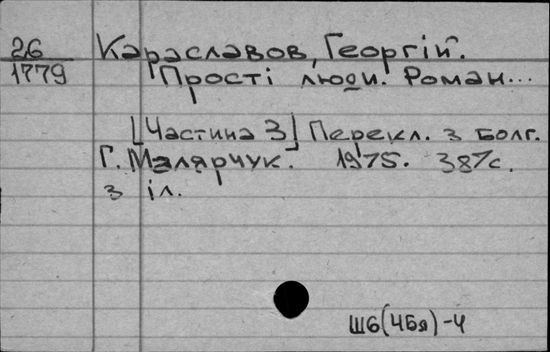 26
1779
Караславов, Георгій.
Прості люди. Роман...
[Частина 3] Перекл. з болг.
Г. Малярчук. 1975. 387с.
з іл.
Ш6(4Бя)-4